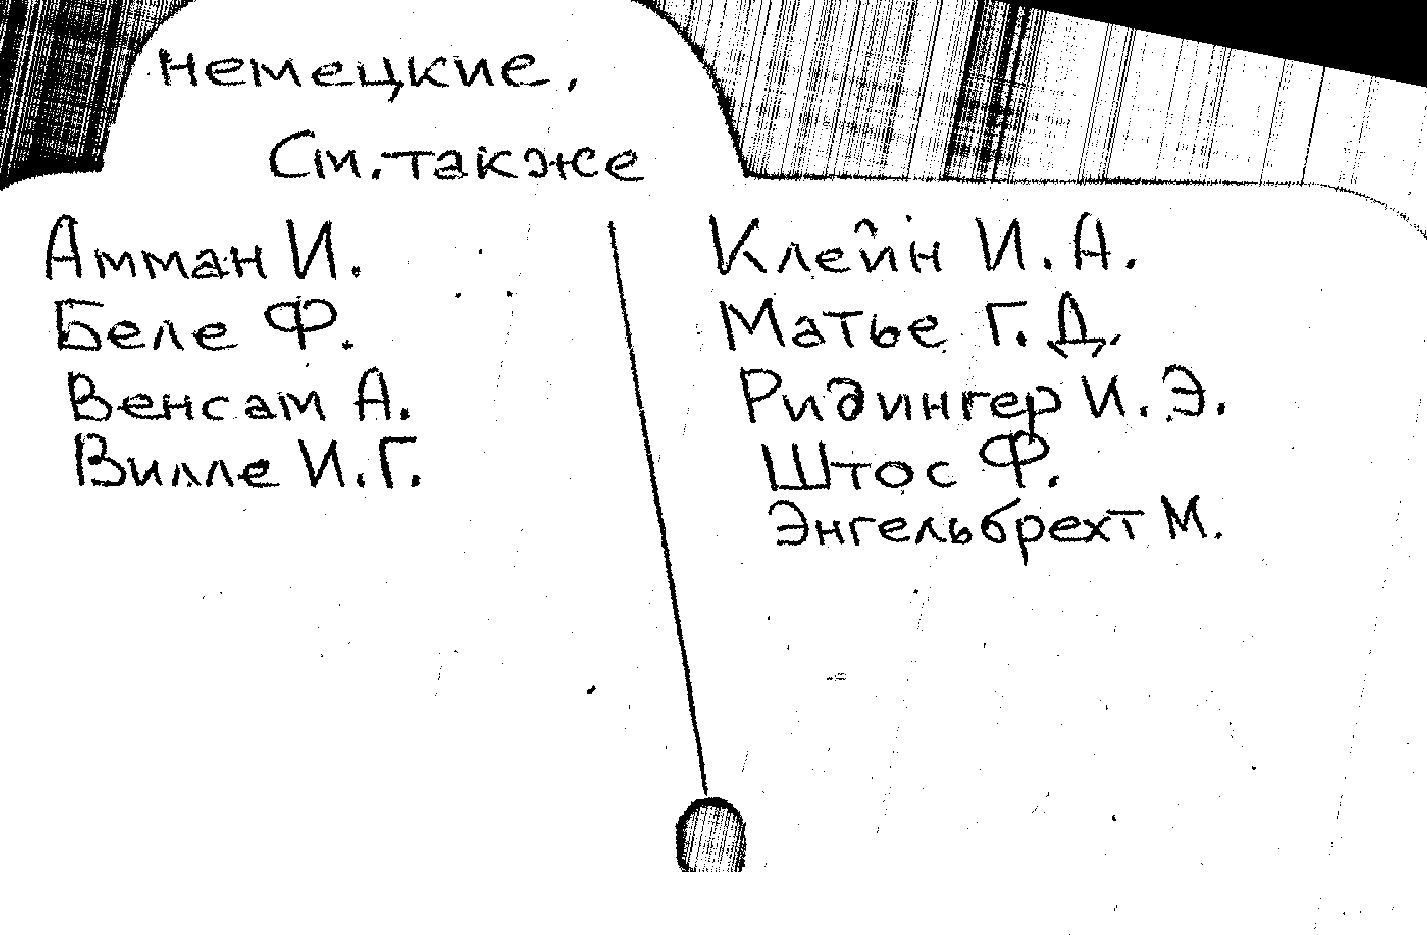 немецкие.
См. также
Амман И.
Беле Ф.
Венсам А.
Вилле И.Г.
Клейн И.А.
Матье Г.Д.
Ридингер И.Э.
Штос Ф.
Энгельбрехт М.